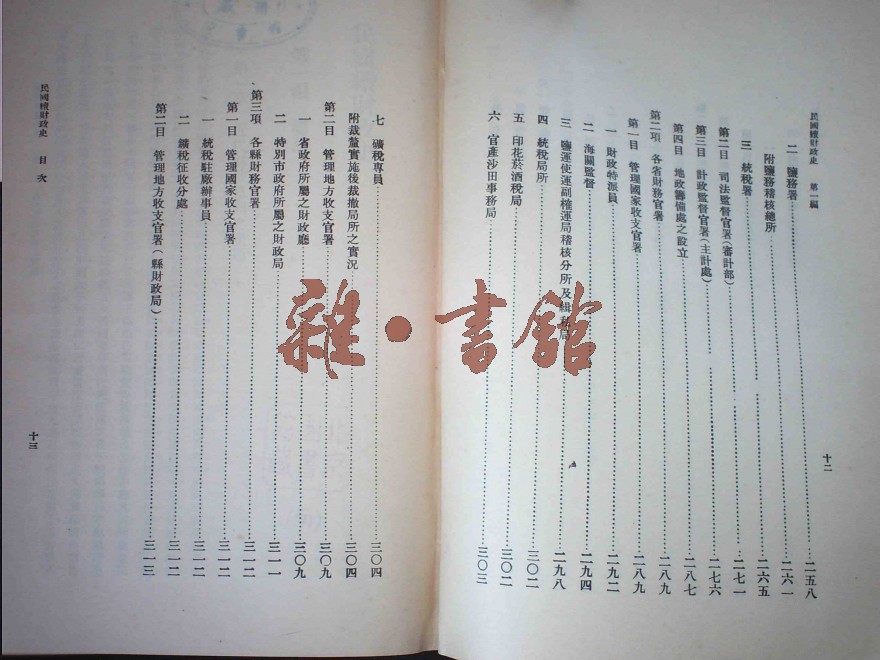 民國續財政史 第一編
二 鹽務署……二五八
附鹽務稽核總所……二六一
三 統稅署……二六五
第二目 司法監督官署(審計部)……二七一
第三目 計政監督官署(主計處)……二七六
第四目 地政籌備處之設立……二八七
第二項 各省財務官署……二八九
第一目 管理國家收支官署……二八九
一 財政特派員……二九二
二 海關監督……二九四
三 鹽運使運副榷運局稽核分所及緝私局……二九八
四 統稅局所……三〇二
五 印花菸酒稅局……三〇二
六 官產沙田事務局……三〇三
十二
七 礦稅專員……三〇四
附裁釐實施後裁撤局所之實況……三〇四
第二目 管理地方收支官署……三〇九
一 省政府所屬之財政廳……三〇九
二 特別市政府所屬之財政局……三一一
第三項 各縣財務官署……三一二
第一目 管理國家收支官署……三一二
一 統稅駐廠辦事員……三一二
二 鑛稅征收分處……三一二
第二目 管理地方收支官署(縣財政局)……三一三
民國續財政史 目次
十三
雜·書館